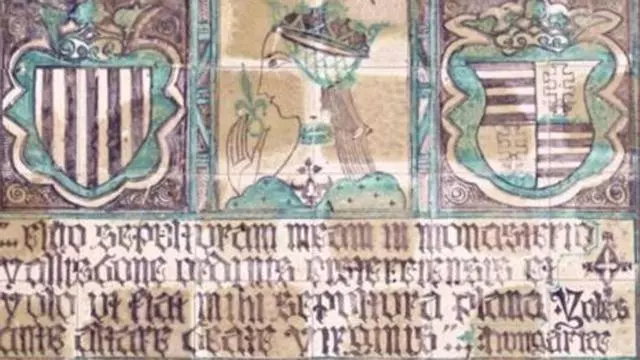 "... eligo sepulturam meam in monasterio
vallisbone ordinis cisterciensis et
volo ut fiat mihi sepultura plana Yoles
ante altare beate virginis"...